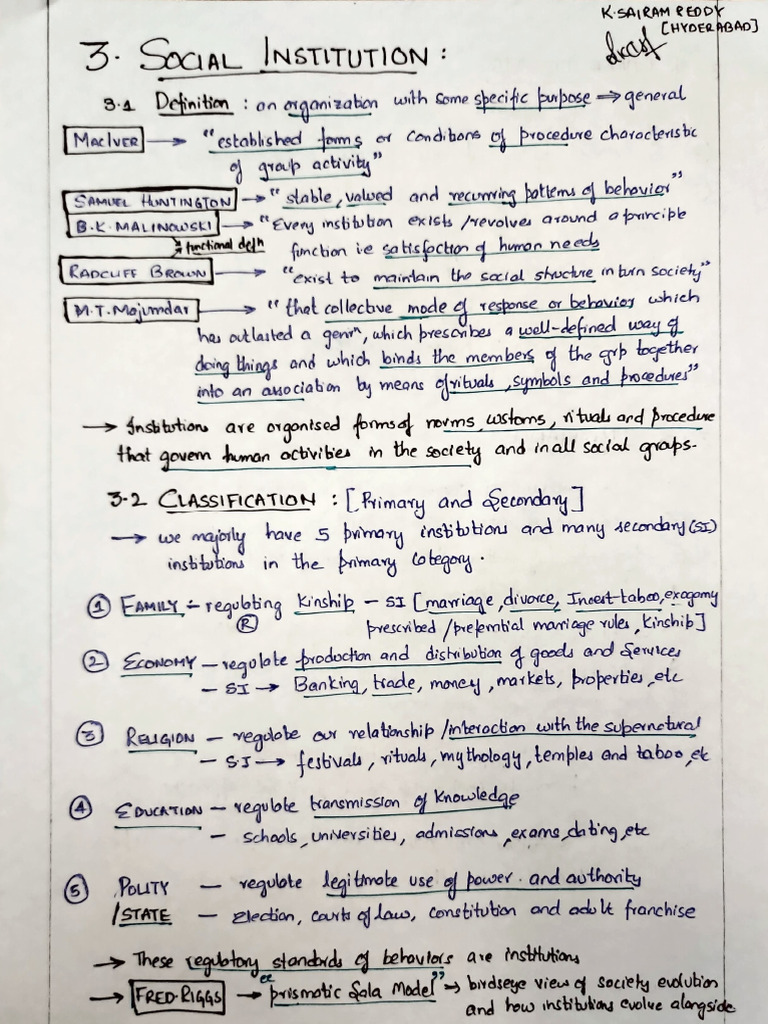 K. SAIRAM REDDY
[HYDERABAD]
3. SOCIAL INSTITUTION :
3.1 Definition : an organization with some specific purpose ⇒ general
MACIVER → "established forms or conditions of procedure characteristic
of group activity"
SAMUEL HUNTINGTON → "stable, valued and recurring patterns of behavior"
B.K. MALINOWSKI → "Every institution exists /revolves around a principle
functional defn function i.e satisfaction of human needs
RADCLIFF BROWN → "exist to maintain the social structure in turn society"
M.T. Majumdar → "that collective mode of response or behavior which
has outlasted a genrn, which prescribes a well-defined way of
doing things and which binds the members of the grp together
into an association by means of rituals, symbols and procedures"
→ Institutions are organised forms of norms, customs, rituals and procedure
that govern human activities in the society and in all social groups.
3.2 CLASSIFICATION : [Primary and Secondary]
→ we majorly have 5 primary institutions and many secondary (SI)
institutions in the primary category.
① FAMILY :- regulating kinship – SI [marriage, divorce, Incest-taboo, exogamy
Ⓡ prescribed /preferential marriage rules, kinship]
② ECONOMY – regulate production and distribution of goods and Services
– SI → Banking, trade, money, markets, properties, etc
③ RELIGION – regulate our relationship /interaction with the supernatural
– SI → festivals, rituals, mythology, temples and taboo, etc
④ EDUCATION – regulate transmission of knowledge
– schools, universities, admissions, exams, dating, etc
⑤ POLITY – regulate legitimate use of power. and authority
/STATE – Election, courts of law, constitution and adult franchise
→ These regulatory standards of behaviors are institutions
→ FRED. RIGGS → "prismatic Sala Model" → birdseye view of society evolution
and how institutions evolve alongside